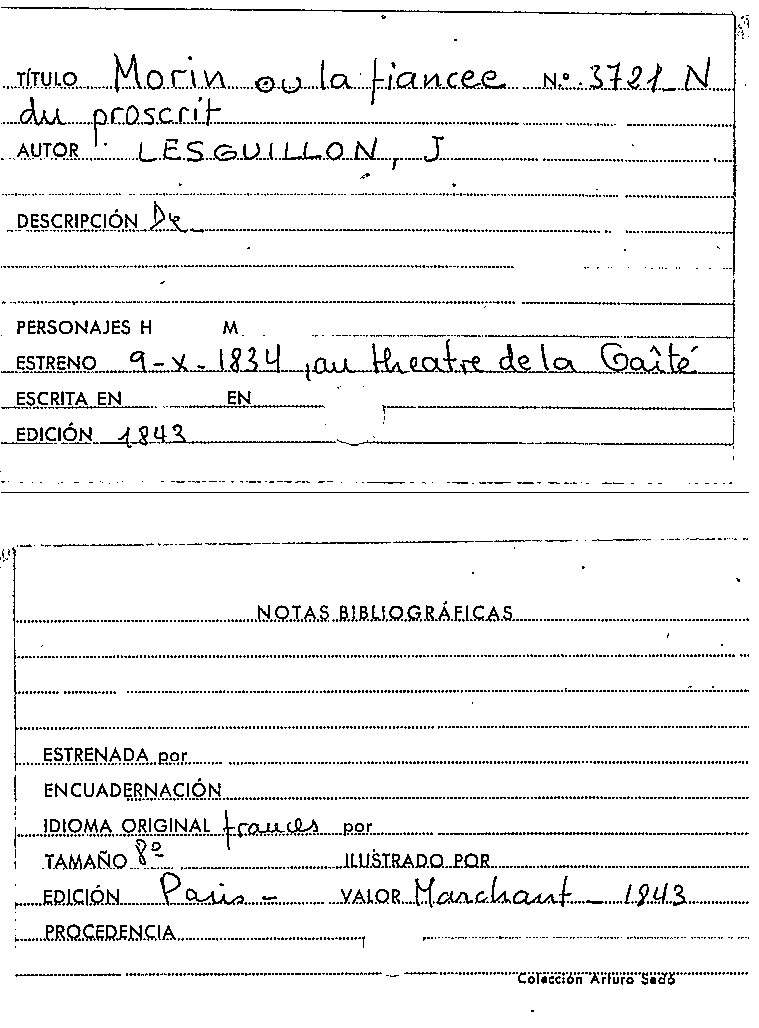 TÍTULO Morin ou la fiancee N.º 3721_N
du proscrit
AUTOR LESGUILLON, J
DESCRIPCIÓN
PERSONAJES H M.
ESTRENO 9-X-1834, au theatre de la Gaîté
ESCRITA EN EN
EDICIÓN 1843
NOTAS BIBLIOGRÁFICAS
ESTRENADA por
ENCUADERNACIÓN
IDIOMA ORIGINAL frances por
TAMAÑO 8º ILUSTRADO POR
EDICIÓN Paris - VALOR Marchant - 1843
PROCEDENCIA
Colección Arturo Sedó